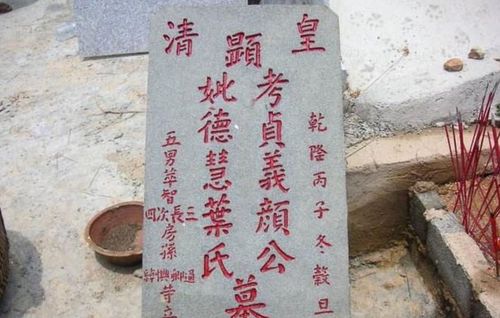 皇清
乾隆丙子冬穀旦
顯
考貞義顏公
妣德慧葉氏
墓
五男萃智
三長次四
房孫
立